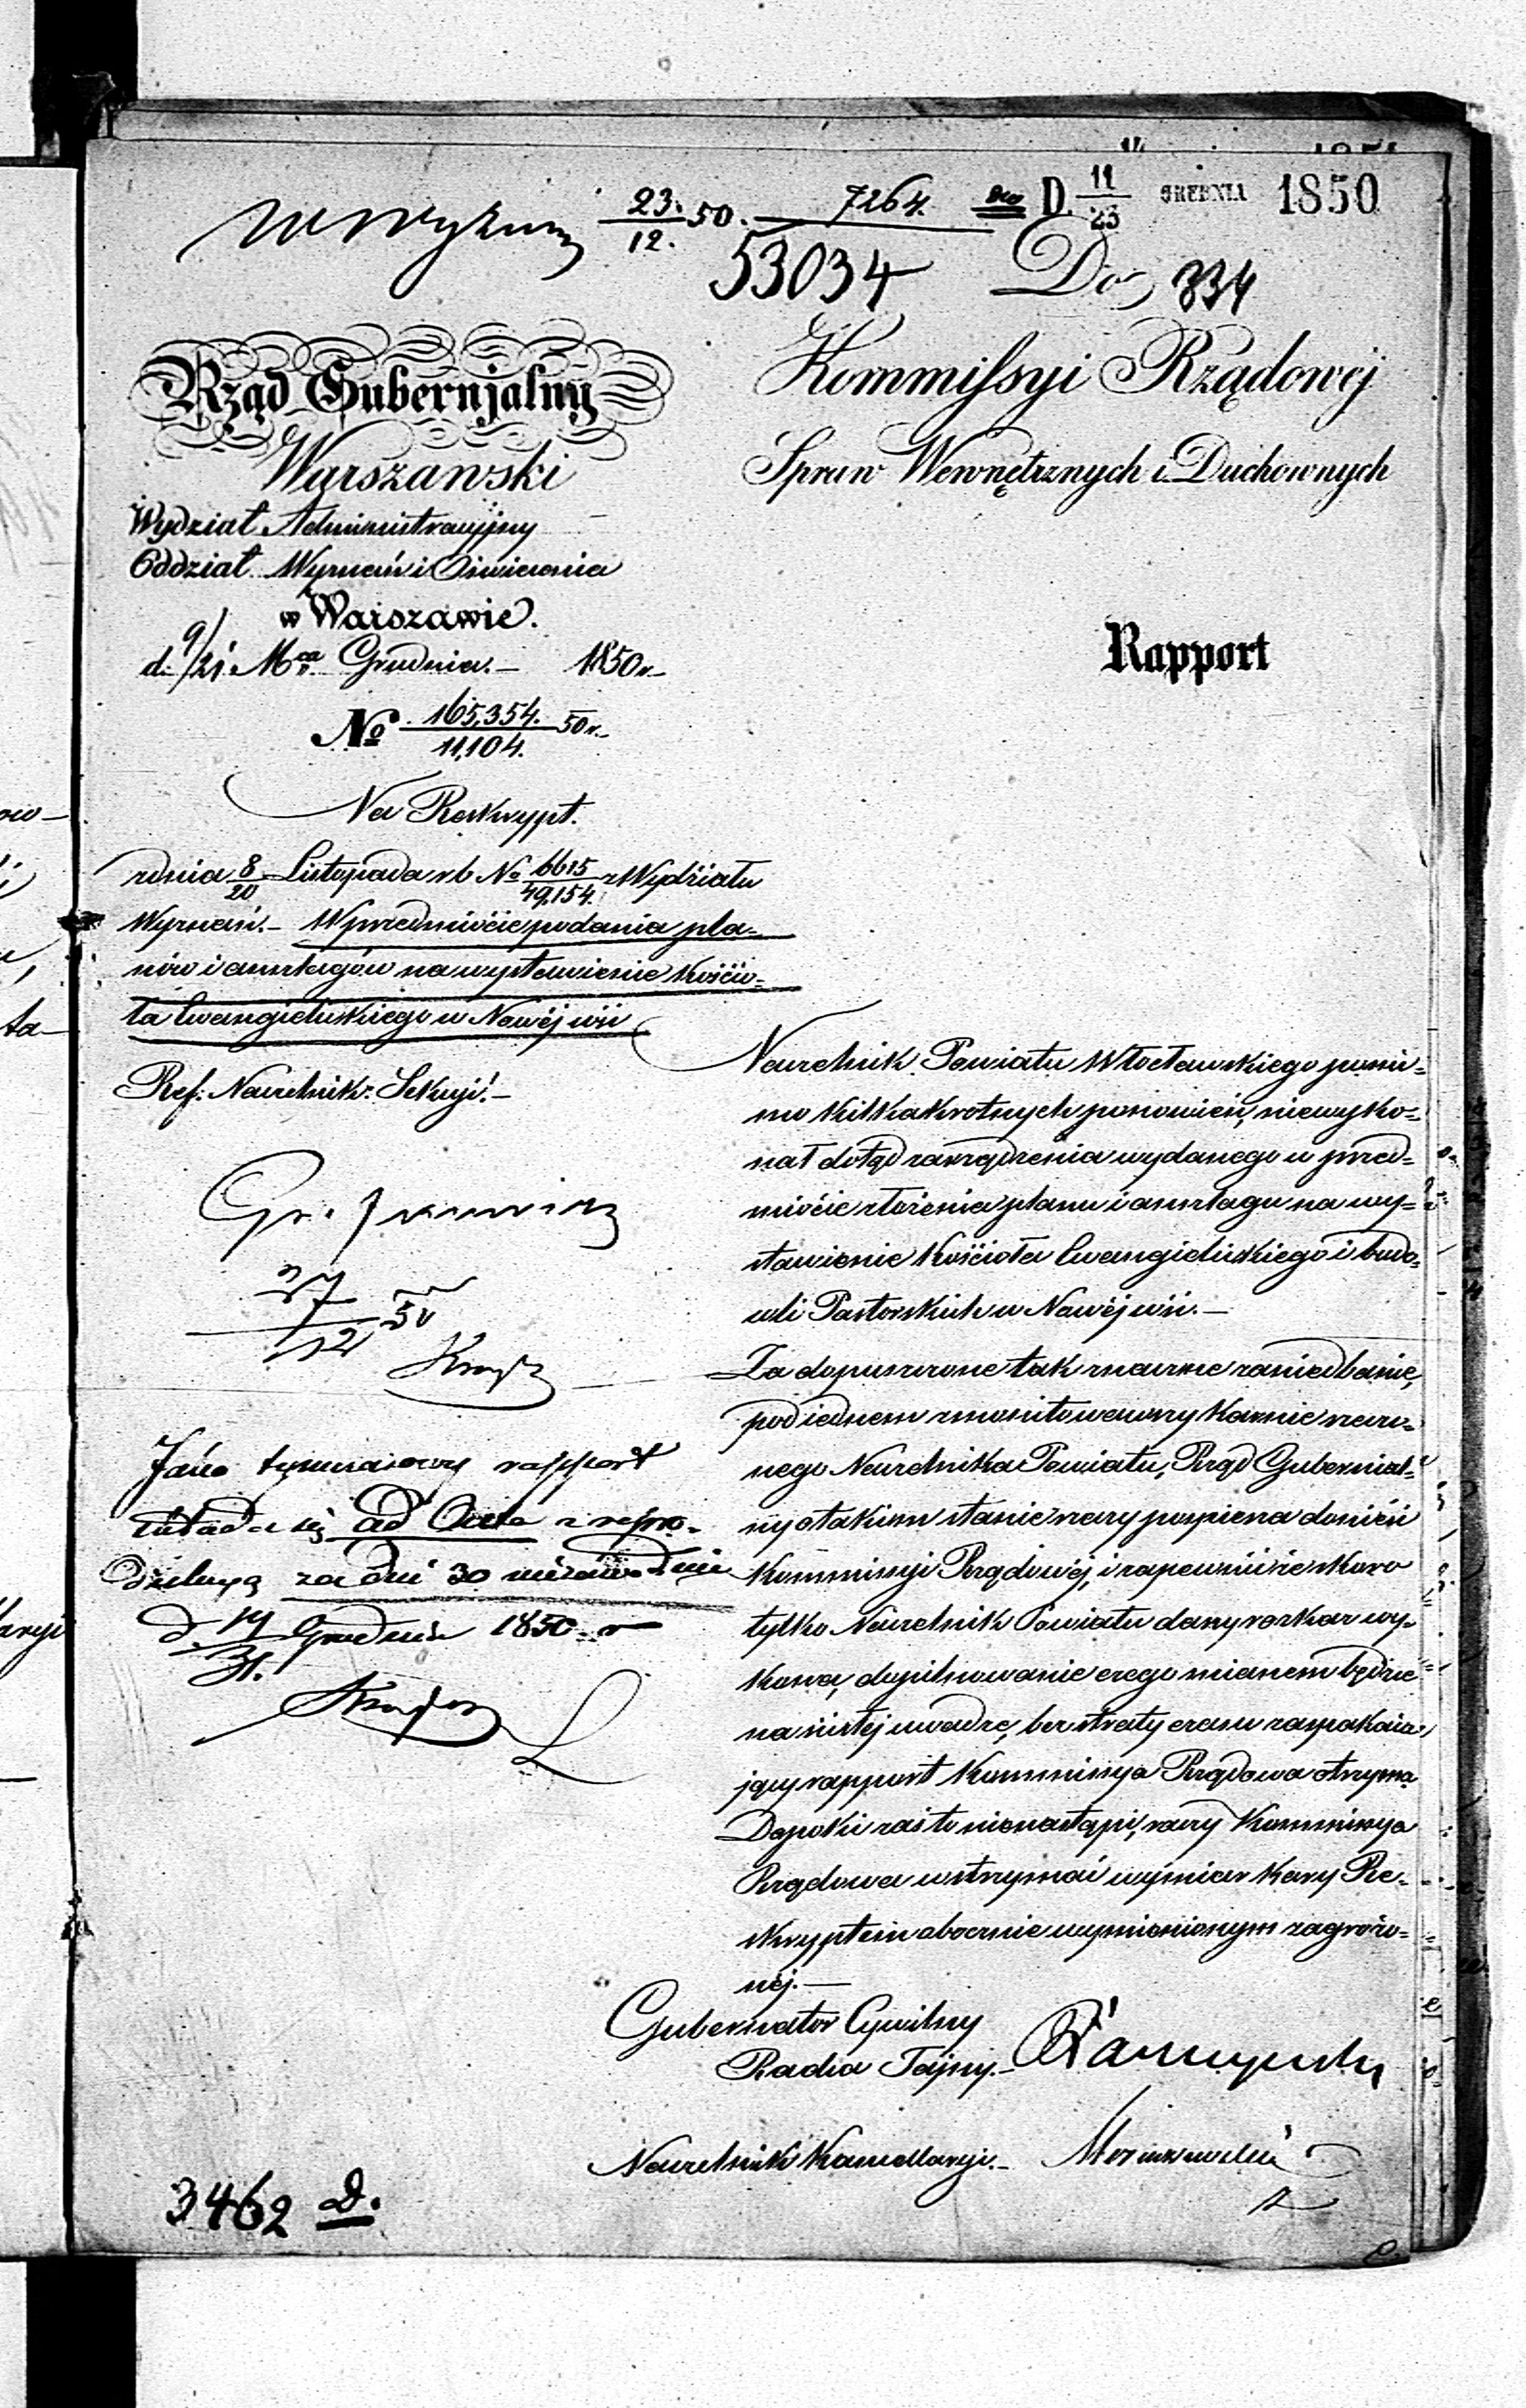 W Wyzn.
23/12 50. 7264. D. 11/23 GRUDNIA 1850
53034
Do 334
Rząd Gubernjalny
Warszawski
Wydział Administracyjny
Oddział Wyznań i Oświecenia
w Warszawie.
d. 9/21 Mca Grudnia. – 1850 r. –
No 165,354./11,104. 50 r. –
Kommissyi Rządowéj
Spraw Wewnętrznych i Duchownych
Rapport
Na Reskrypt.
z dnia 8/20 Listopada r b No 6615/49,154. z Wydziału
Wyznań. – W przedmiocie podania pla=
nów i anszlagów na wystawienie Kościo=
ła Ewangielickiego w Nowéj wsi
Ref: Naczelnik Sekcyi. –
27/12 50
Jako tymczasowy rapport
składa się ad Acta z repro-
dukcyą za dni 30 niezawodnie
d. 19/31. Grudnia 1850 r
Naczelnik Powiatu Włocławskiego pomi=
mo kilkakrotnych ponowień, niewyko=
nał dotąd zarządzenia wydanego w przed=
miocie złożenia planu i anszlagu na wy=
stawienie Kościoła Ewangielickiego i budo=
wli Pastorskich w Nowéj wsi. –
Za dopuszczone tak znaczne zaniedbanie,
pod iednem zmonitowawszy karnie rzeczo=
nego Naczelnika Powiatu, Rząd Gubernial=
ny o takim stanie rzeczy pospiesza donieść
Kommissyi Rządowéj, i zapewnić że skoro
tylko Naczelnik Powiatu dany rozkaz wy=
kona, dopilnowanie czego mianem będzie
na ścisłéj uwadze, bez straty czasu zaspakaia=
jący rapport Kommissya Rządowa otrzyma
Dopoki zaś to nienastąpi, raczy Kommissya
Rządowa wstrzymać wymiar kary Re=
skryptem obocznie wymienionym zagrożo=
néj. –
Gubernator Cywilny
Radca Tajny. –
Naczelnik Kancellaryi. –
3462 D.